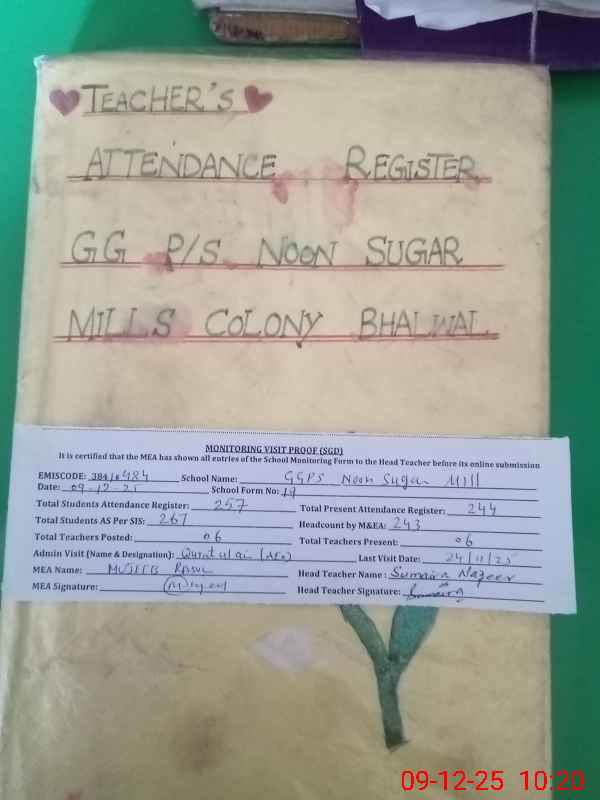 TEACHER'S
ATTENDANCE REGISTER
GG P/S NOON SUGAR
MILLS COLONY BHALWAL
MONITORING VISIT PROOF (SGD)
It is certified that the MEA has shown all entries of the School Monitoring Form to the Head Teacher before its online submission
EMISCODE: 384/0484 School Name: GGPS Noon Sugar Mill
Date: 09-12-25 School Form No: 19
Total Students Attendance Register: 257 Total Present Attendance Register: 244
Total Students AS Per SIS: 267 Headcount by M&EA: 243
Total Teachers Posted: 06 Total Teachers Present: 06
Admin Visit (Name & Designation): Qurat ul ain (AEO) Last Visit Date: 24/11/25
MEA Name: MUJEEB RASUL Head Teacher Name: Sumaira Nazeer
MEA Signature: Head Teacher Signature: Sumaira
09-12-25 10:20